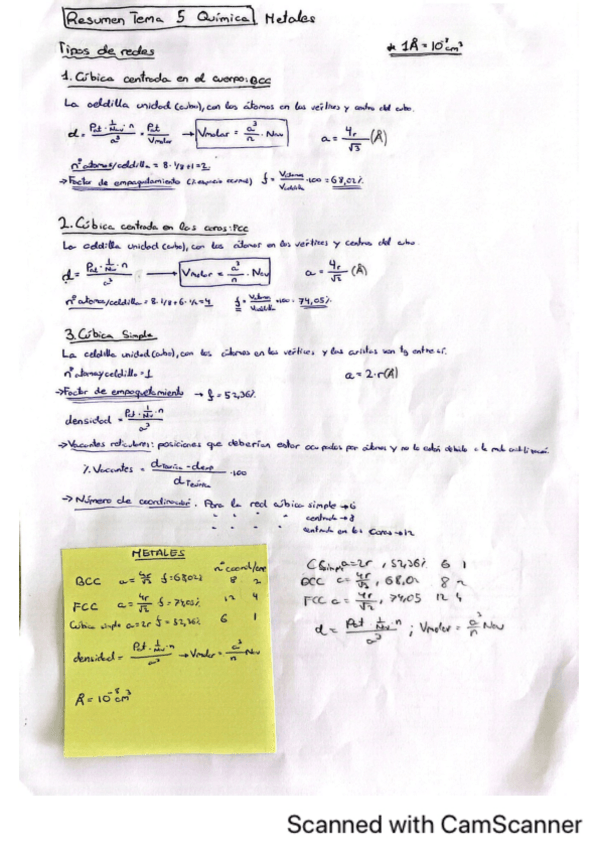 Resumen Tema 5 Química Metales
Tipos de redes
1. Cúbica centrada en el cuerpo: BCC
La celdilla unidad (cubo), con los átomos en los vértices y centro del cubo.
d = Pat · 1/Nav · n / a³ = Pat / Vmolar → Vmolar = a³/n · Nav a = 4r/√3 (Å)
nº atomos/celdilla = 8 · 1/8 + 1 = 2
→ Factor de empaquetamiento f = ·100 = 68,02%
2. Cúbica centrada en las caras: FCC
La celdilla unidad (cubo), con los átomos en los vértices y centros del cubo.
d = Pat · 1/Nav · n / a³ → Vmolar = a³/n · Nav a = 4r/√2 (Å)
nº atomos/celdilla = 8 · 1/8 + 6 · 1/2 = 4 f = ·100 = 74,05%
3. Cúbica Simple
La celdilla unidad (cubo), con los átomos en los vértices y las aristas son tg entre sí.
nº atomos y celdilla = 1 a = 2·r (Å)
→ Factor de empaquetamiento → f = 52,36%
densidad = Pat · 1/Nav · n / a³
→ Vacantes reticulares: posiciones que deberían estar ocupadas por átomos y no lo están debido a la
% Vacantes = dTeórica - dexp / dTeórica · 100
→ Número de coordinación. Para la red cúbica simple → 6
" " " " centrada → 8
" " " " centrada en las caras → 12
METALES
nº coord/
BCC a = f = 68,02% 8 2
FCC a = 4r/√2 f = 74,05% 12 4
Cúbica simple a = 2r f = 52,36% 6 1
densidad = Pat · 1/Nav · n / a³ → Vmolar = a³/n Nav
C Simp a = 2r, 52,36% 6 1
BCC 68,02 8 2
FCC a = 4r/√2, 74,05 12 4
d = Pat 1/Nav · n / a³ ; Vmolar = a³/n Nav
Scanned with CamScanner